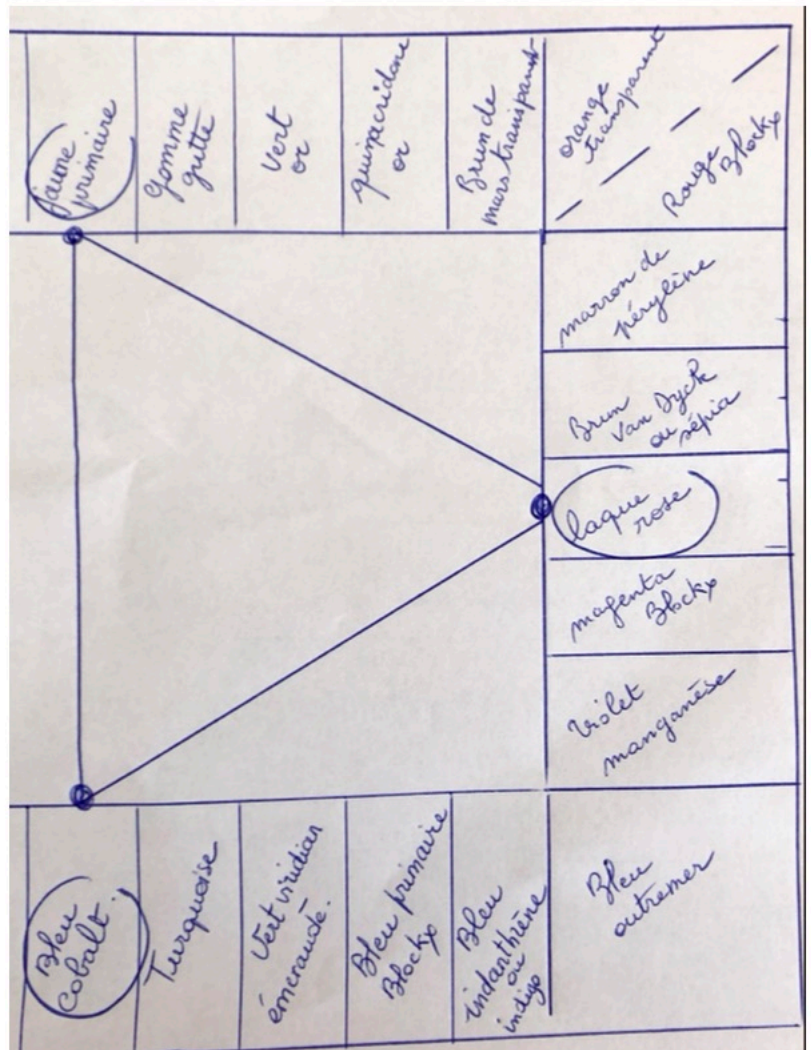 Jaune
primaire
Gomme
gutte
Vert
or
quinacridone
or
Brun de
mars transparent
orange
transparent
Rouge
Blockx
marron de
pérylène
Brun
Van Dyck
ou sépia
laque
rose
magenta
Blockx
Violet
manganèse
Bleu
cobalt.
Turquoise
Vert viridian
émeraude.
Bleu primaire
Blockx
Bleu
indanthrène
ou
indigo
Bleu
outremer